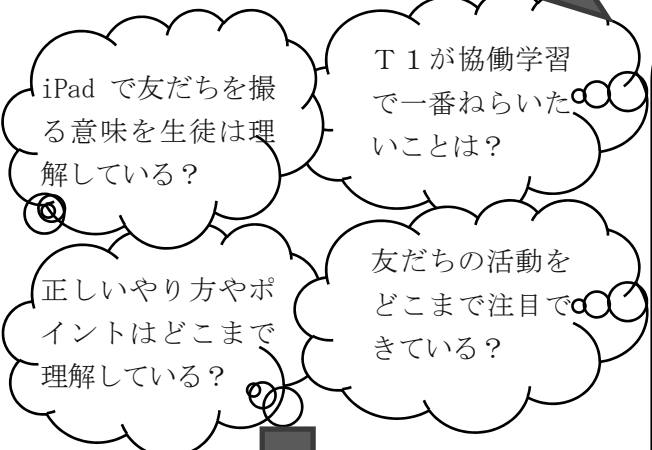 iPad で友だちを撮
る意味を生徒は理
解している？
Ｔ１が協働学習
で一番ねらいた
いことは？
正しいやり方やポ
イントはどこまで
理解している？
友だちの活動を
どこまで注目で
きている？